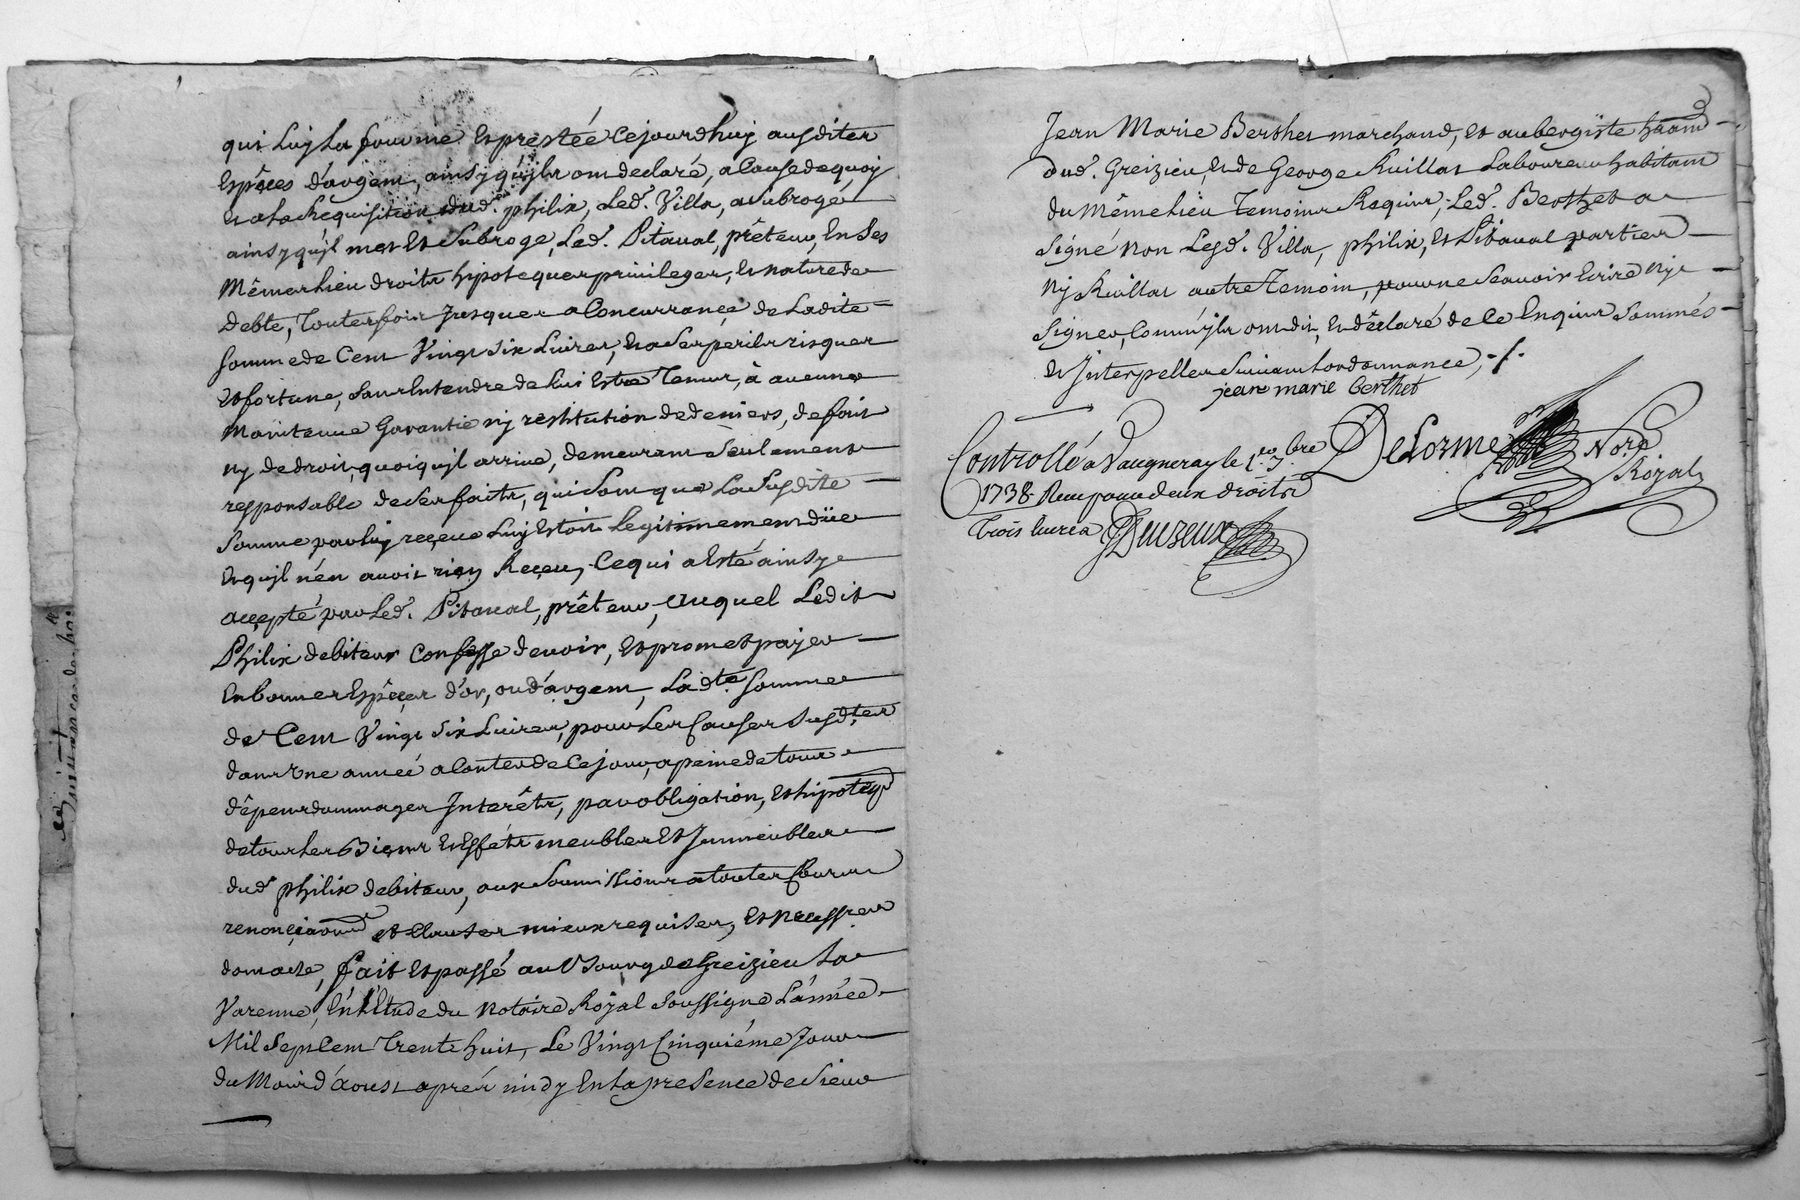 qui luy la fournie et prestée cejourd'huy ausdites
Espêces d'argent, ainsy qu'jls ont declaré, a Cause dequoy
et ala Requisition dud. philix, Led. Villa, a subrogé
ainsy qu'jl met et subroge, Led. Pitaval, prêteur, En ses
Mêmes lieu droits hipoteques privileges, et nature de
Debte, toutes fois jusques a Concurrance de Ladite
somme de Cent Vingt six Livres, et a ses perils risques
et fortune, sans Entendre de lui Estre Tenus, à aucune
Maintenue Garantie nj restitution de deniers, de fait
ny de droit, quoiqu'jl arrive, demeurant seulement
responsable de ses faits, qui sont que La susdite
somme par luy reçeue Luy Estoit legitimement düe
Et qu'jl n'en avoit rien Reçeu, Ce qui a Esté ainsy
accepté par Led. Pitaval, prêteur, auquel Ledit
Philix debiteur Confesse devoir, et promet payer
En bonnes Espêces d'or, ou d'argent, Lad.te somme
de Cent Vingt six Livres, pour Les Causes susd.tes
dans Une année a Conter de Ce jour, a peine de tous
dêpens dommages Interêts, par obligation, et hipoteq
de tous les Biens et Effêts meubles Et Jmmeubles
dud. philix debiteur, aux soumissions a toutes Cours
renonçiaons et Clauses mieux requises, et necessres
dont acte, fait et passé au Bourg de Greizieu La
Varenne, En l'Etude du Notaire Royal soussigné L'année
Mil Sept Cent Trente huit, Le Vingt Cinquiéme Jour
du Mois d'aoust aprés midy En la presence de sieur
Jean Marie Berthet marchand, et aubergiste
dud. Greizieu, et de George Rivillat Laboureur habitant
du Même lieu Temoins Requis, Led. Berthet a
signé non Lesd. Villa, philix, et Pitaval parties
nj Rivillat autre Temoin, pour ne sçavoir Ecrire nj
signer, Comm'jls ont dit, et dêclaré de Ce Enquis sommés
et Jnterpelles suivant lordonnance,
jean marie berthet
Controllé a Vaugneray le 1.er 7.bre
1738. Reçu pour deux droits
trois livres
Delorme
No.re
Royal